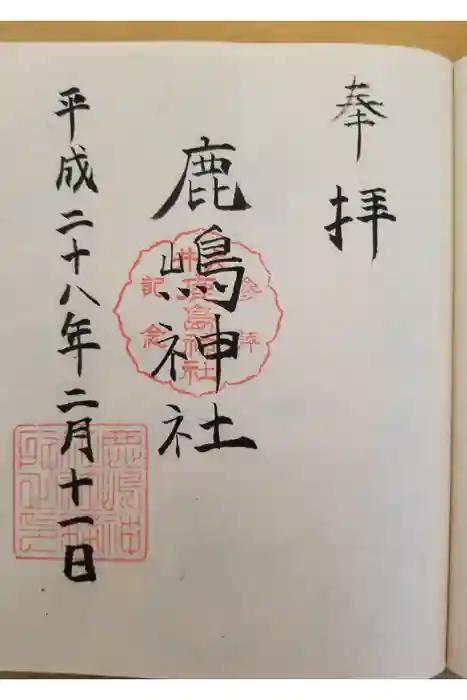 奉拝
鹿嶋神社
参拝
記念
鹿島神社
平成二十八年二月十一日